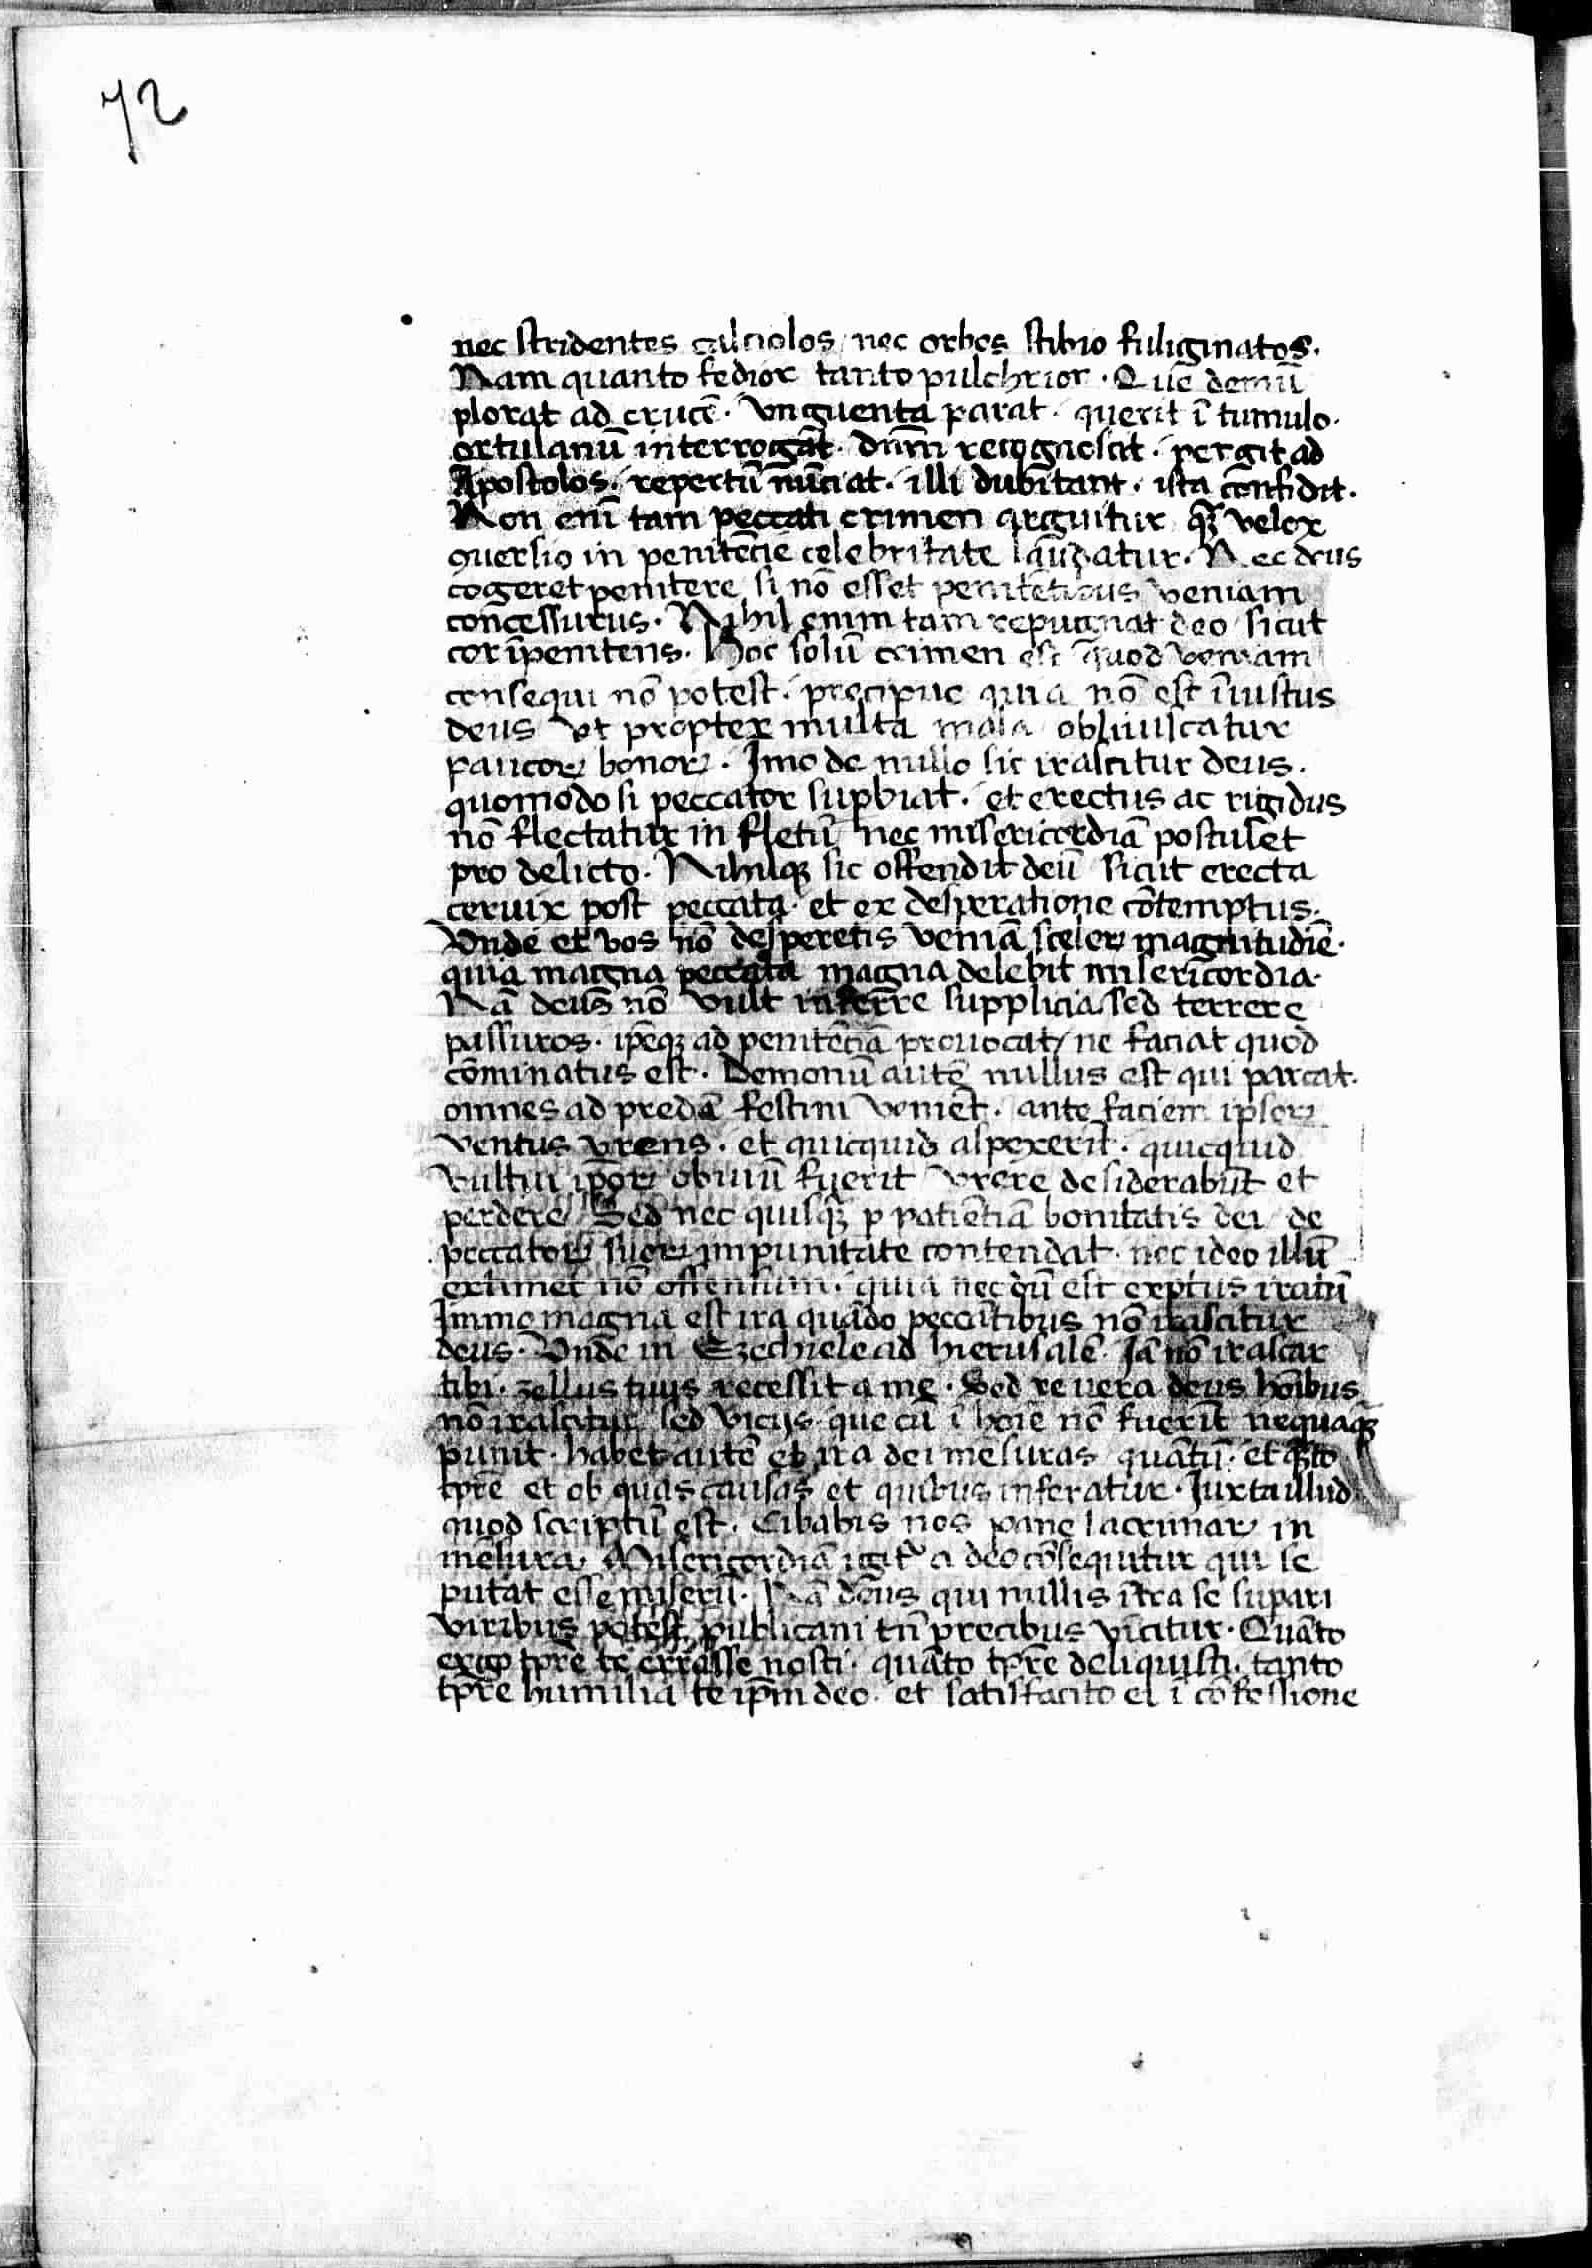 72
nec stridentes calciolos / nec orbes stibio fuliginatos.
Nam quanto fedior tanto pulchrior. Quē demū
plorat ad crucē. vnguenta parat. querit ī tumulo.
ortulanū interrogāt. dn̄m recognoscit. pergit ad
Apostolos. repertū nūciat. illi dubitant. ista confidit.
Non enī tam peccati crimen arguitur qꝫ velox
ꝯuersio in penitēcie celebritate laudatur. Nec deus
cogeret penitere si nō esset penitētibus veniam
concessurus. Nihil enim tam repugnat deo sicut
cor īpenitens. Hoc solū crimen est quod veniam
consequi nō potest. precipue quia nō est īiustus
deus vt propter multa mala obliuiscatur
paucoꝝ bonoꝝ. Imo de nullo sic irascitur deus.
quomodo si peccator supbiat. et erectus ac rigidus
nō flectatur in fletū nec misericordiā postulet
pro delicto. Nihilqꝫ sic offendit deū sicut erecta
ceruix post peccata. et ex desperatione cōtemptus.
Vnde et vos nō desperetis veniā sceleꝝ magnitudiē.
quia magna peccata magna delebit misericordia.
Nā deus nō vult inferre supplicia sed terrere
passuros. ip̄eqꝫ ad penitēciā prouocat / ne faciat quod
cōminatus est. Demonū autē nullus est qui parcat.
omnes ad predā festini veniēt. ante faciem ipsoꝝ
ventus vrens. et quicquid aspexerīt. quicquid
vultui ip̄oꝝ obuiū fuerit vrere desiderabūt et
perdere. Sed nec quisqꝫ p patiētiā bonitatis dei de
peccatoꝝ suoꝝ impunitate contendat. nec ideo illū
extimet nō offensum. quia nec dū est exptus iratū
Immo magna est ira quādo peccātibus nō irascitur
deus. Vnde in Ezechiele ad hierusalē. Iā nō irascar
tibi. zellus tuus recessit a me. Sed re uera deus hoībus
nō irascitur sed vicijs. que cū ī hoīe nō fuerīt nequaqꝫ
punit. habet autē et ira dei mesuras quātū. et qꝫto
tp̄re et ob quas causas et quibus inferatur. Iuxta illud
quod scriptū est. Cibabis nos pane lacrimaꝝ in
mēsura. Misericordiā igit᷑ a deo cōsequitur qui se
putat esse miserū. Nā deus qui nullis ītra se supari
viribus potest publicani tn̄ precibus vīcitur. Quāto
ergo tp̄re te errasse nosti. quāto tp̄re deliquisti. tanto
tp̄re humilia te ip̄m deo. et satisfacito ei ī cōfessione